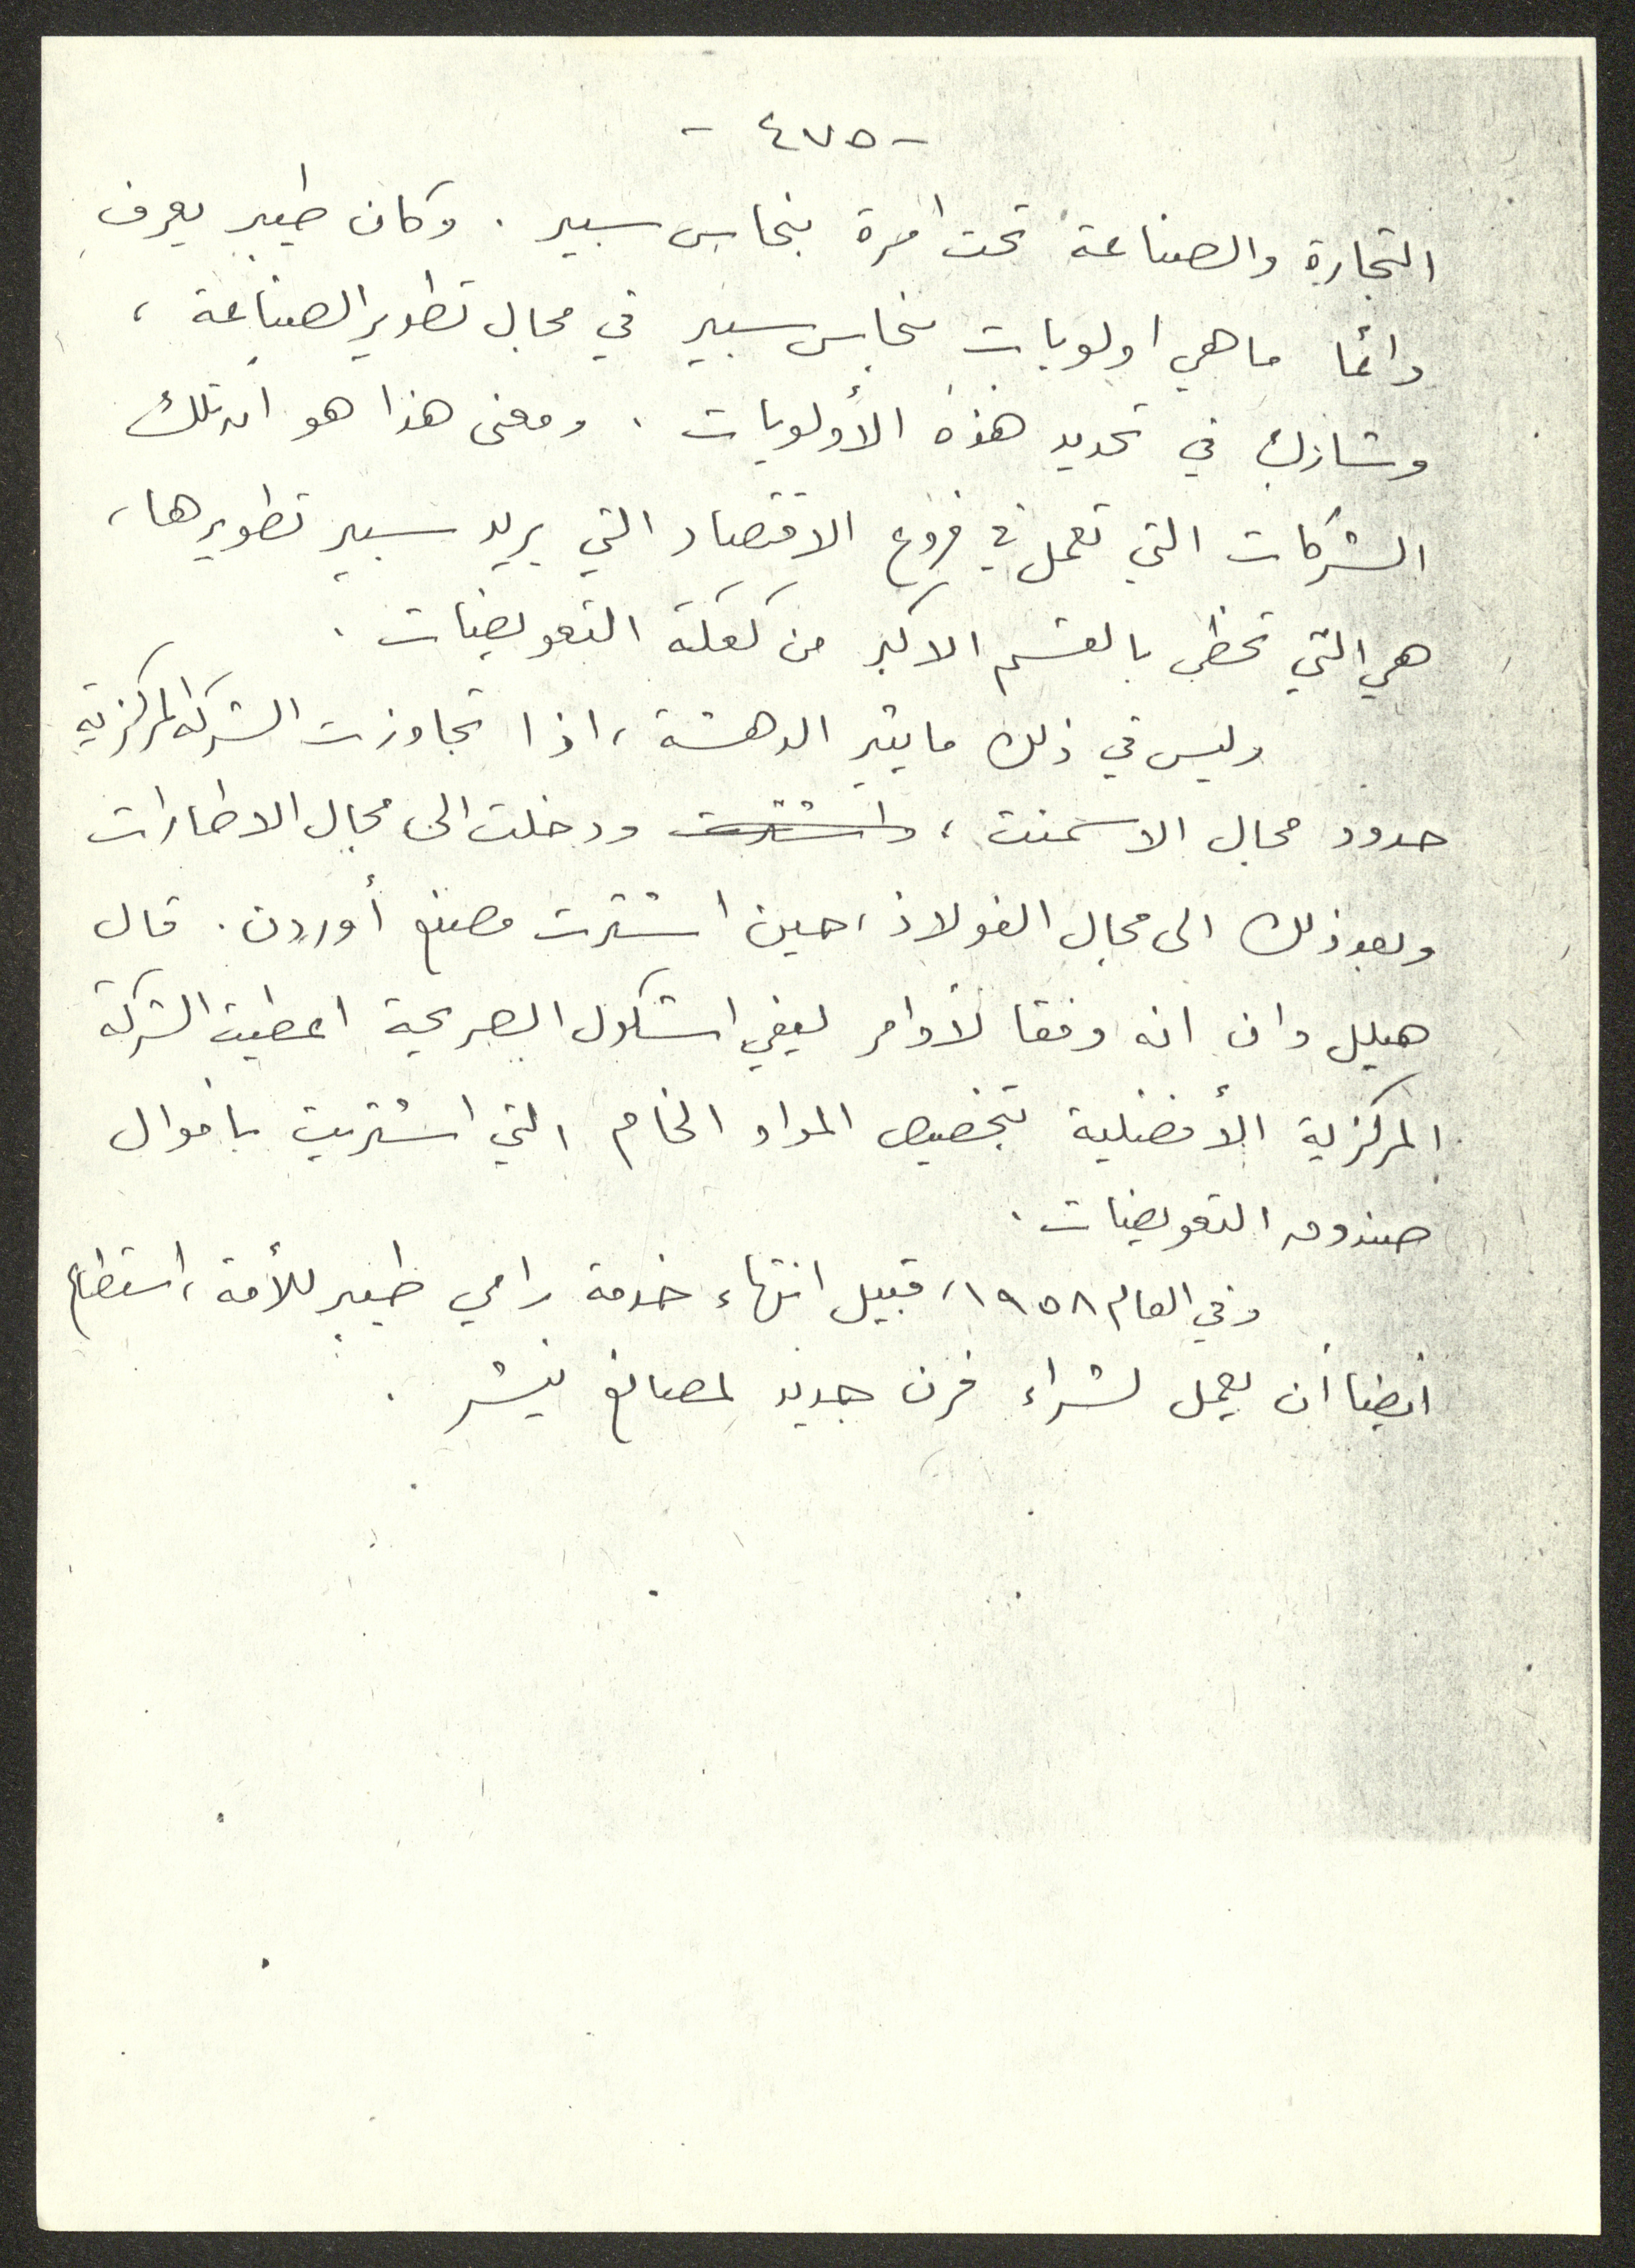 - ٤٧٥ -
التجارة والصناعة تحت امرة بنحاس سبير . وكان طيبر يعرف
دائما ما هي اولويات بنحاس سبير في مجال تطوير الصناعة ،
وشارك في تحديد هذه الأولويات . ومعنى هذا هو ان تلك
الشركات التي تعمل في فروع الاقتصاد التي يريد سبير تطويرها ،
هي التي تحظى بالقسم الاكبر من كعكة التعويضات .
وليس في ذلك ما يثير الدهشة ، اذا تجاوزت الشركة المركزية
حدود مجال الاسمنت ، واشترت ودخلت الى مجال الاطارات
وبعد ذلك الى مجال الفولاذ ، حين اشترت مصنع أوردن . قال
هيلل دان انه وفقا لأوامر ليفي اشكول الصريحة اعطيت الشركة
المركزية الأفضلية بتخصيص المواد الخام التي اشتريت باموال
صندوق التعويضات .
وفي العام ١٩٥٨ ، قبيل انتهاء خدمة رامي طيبر للأمة ، استطاع
ايضا أن يعمل لشراء فرن جديد لمصانع نيشر .